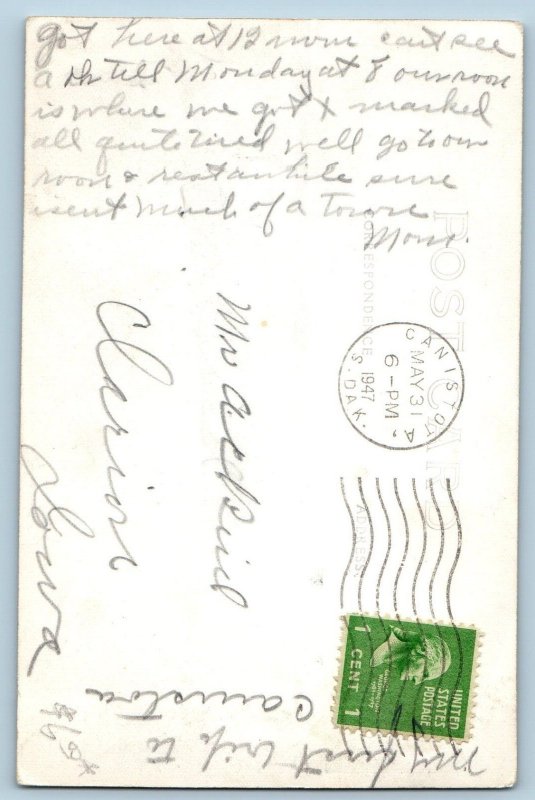 got here at 12 noon cant see
a Dr till Monday at 8 our room
is where we got X marked
all quite tired well go to our
room & rest awhile sure
isent much of a Town
Mom.
POST CARD
CORRESPONDENCE
ADDRESS
CANISTOTA
MAY 31
6-PM
1947
S. DAK.
Mr
Clarion
Iowa
UNITED
STATES
POSTAGE
1 CENT 1
My first trip to
Canistota